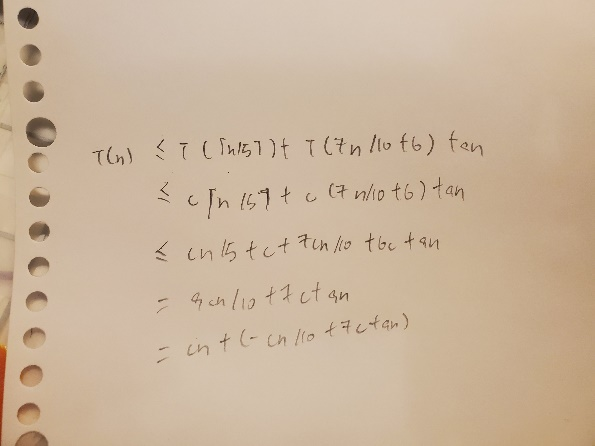 T(n) ≤ T(⌈n/5⌉) + T(7n/10 + 6) + an
≤ c⌈n/5⌉ + c(7n/10 + 6) + an
≤ cn/5 + c + 7cn/10 + 6c + an
= 9cn/10 + 7c + an
= cn + (-cn/10 + 7c + an)